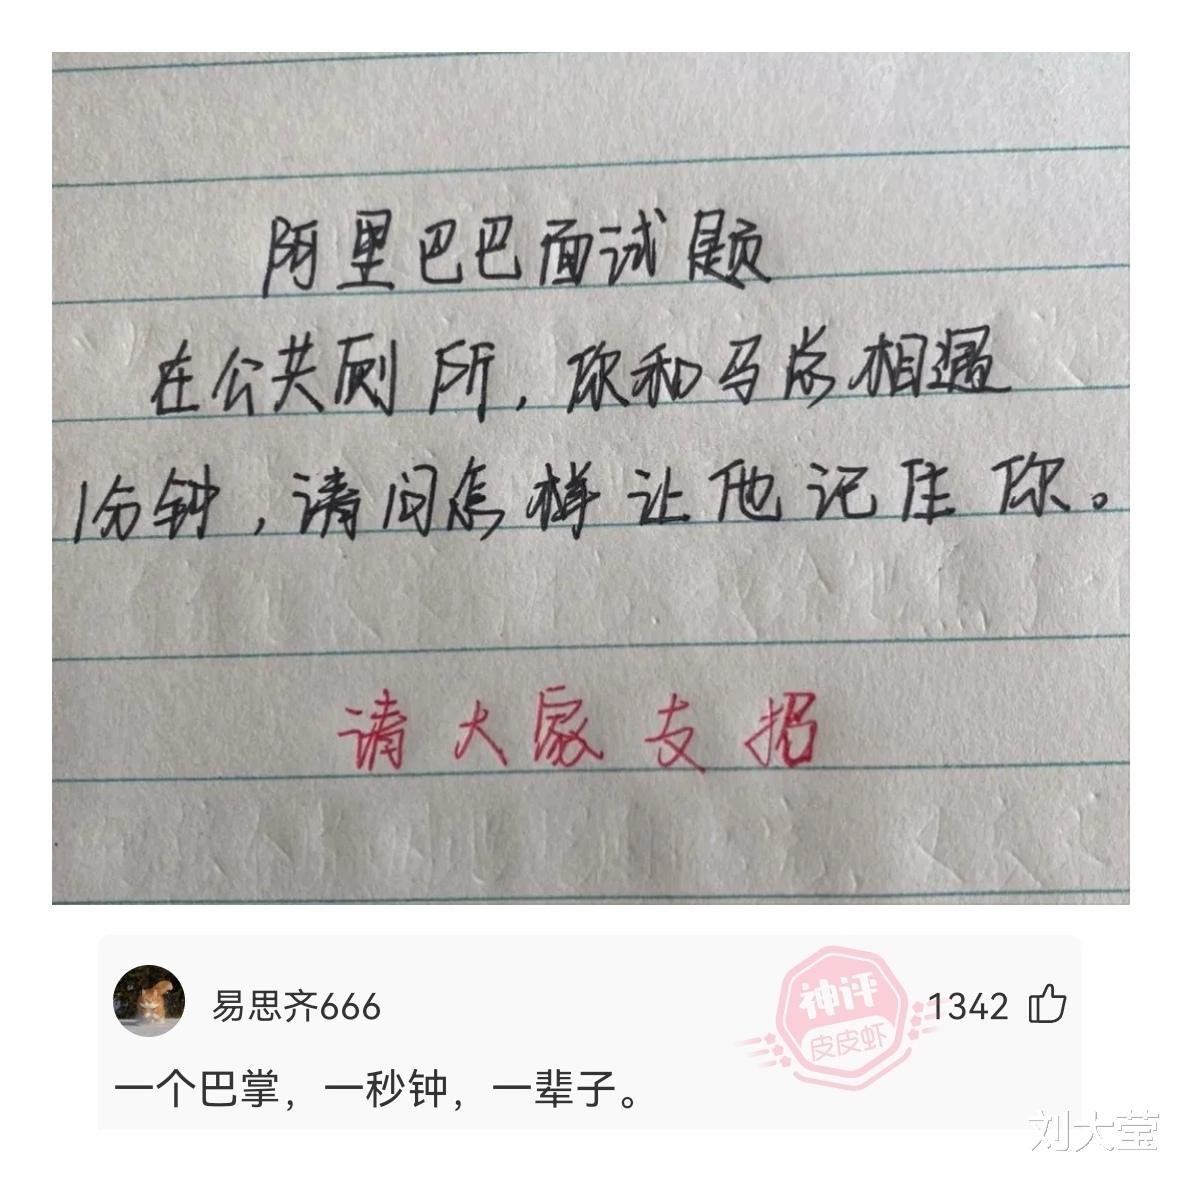 阿里巴巴面试题
在公共厕所，你和马总相遇
1分钟，请问怎样让他记住你。
请大家支招
易思齐666
神评
皮皮虾
1342
一个巴掌，一秒钟，一辈子。
刘大莹